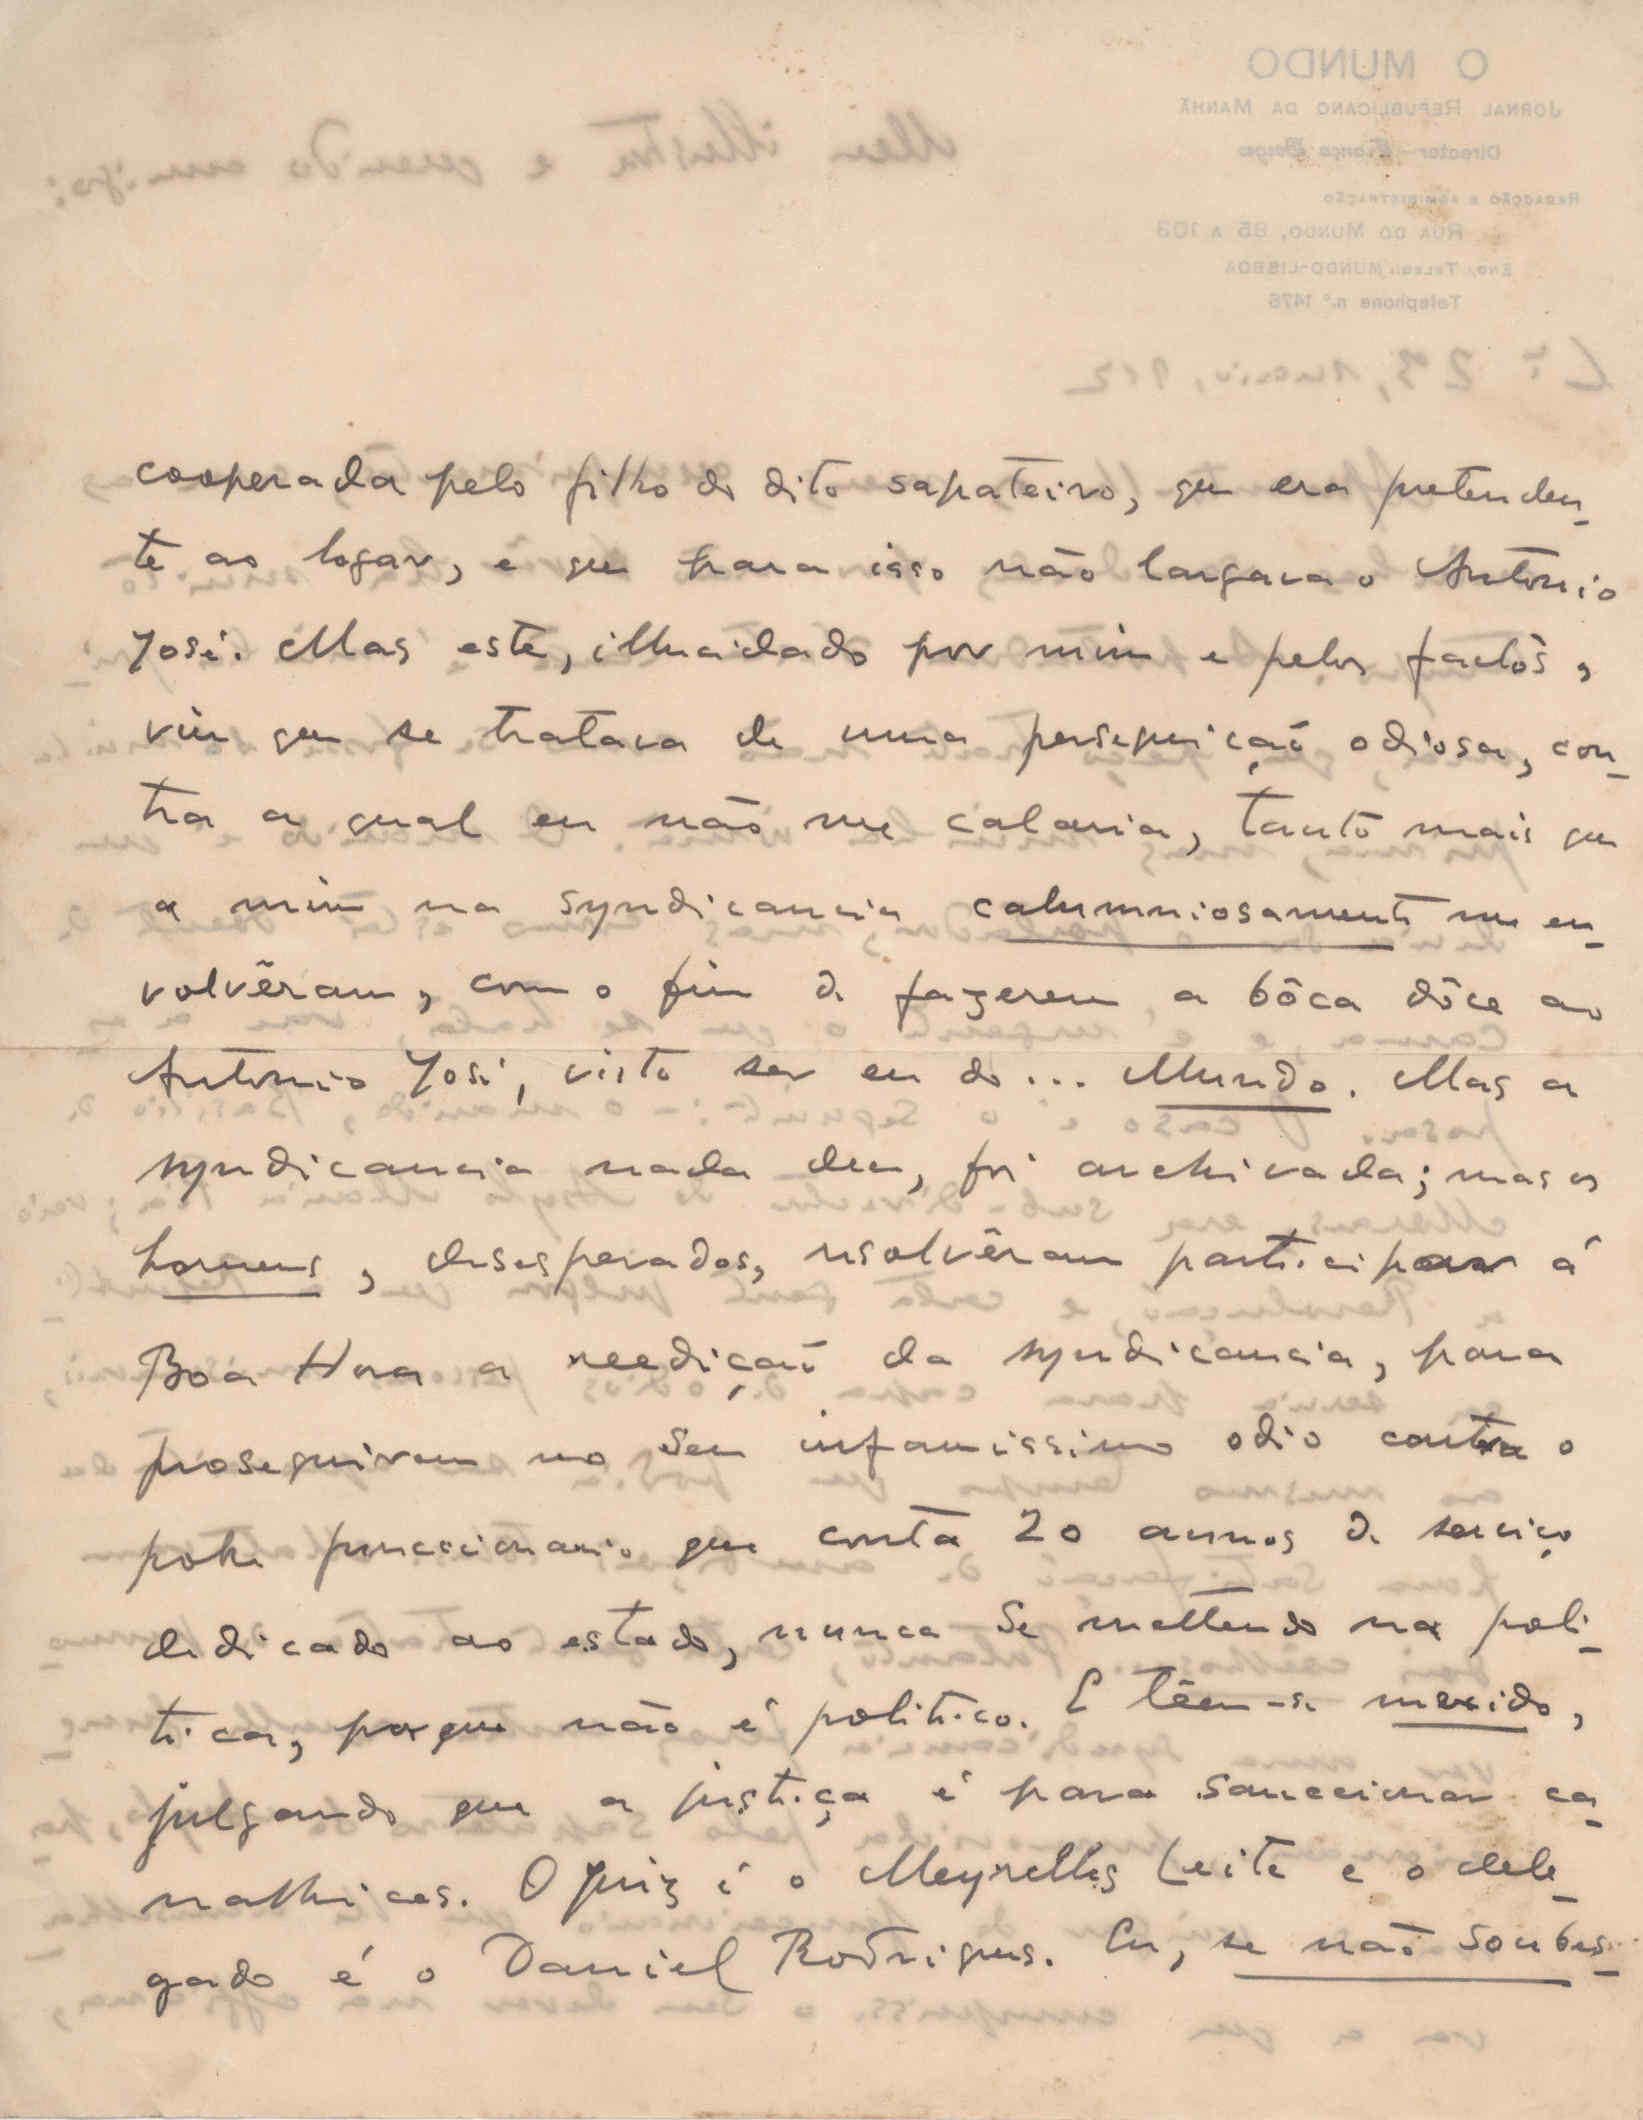 cooperada pelo filho do dito sapateiro, que era pretenden-
te ao logar, e que para isso não largava o Antonio
José. Mas este, illucidado por mim e pelos factos,
viu que se tratava de uma perseguição odiosa, con-
tra a qual eu não me calaria, tanto mais que
a mim na syndicancia calumniosamente me en-
volvêram, com o fim de fazerem a bôca dôce ao
Antonio José, visto ser eu do... Mundo. Mas a
syndicancia nada deu, foi archivada; mas os
homens, desesperados, resolvêram participar á
Boa Hora a reedição da syndicancia, para
proseguirem no seu infamissimo odio contra o
pobre funccionario que conta 20 annos de serviço
dedicado ao estado, nunca se mettendo na poli-
tica, porque não é politico. E têem-se mexido,
julgando que a justiça é para sanccionar ca-
nalhices. O juiz é o Meyrelles Leite e o dele-
gado é o Daniel Rodrigues. Eu, se não soubes-